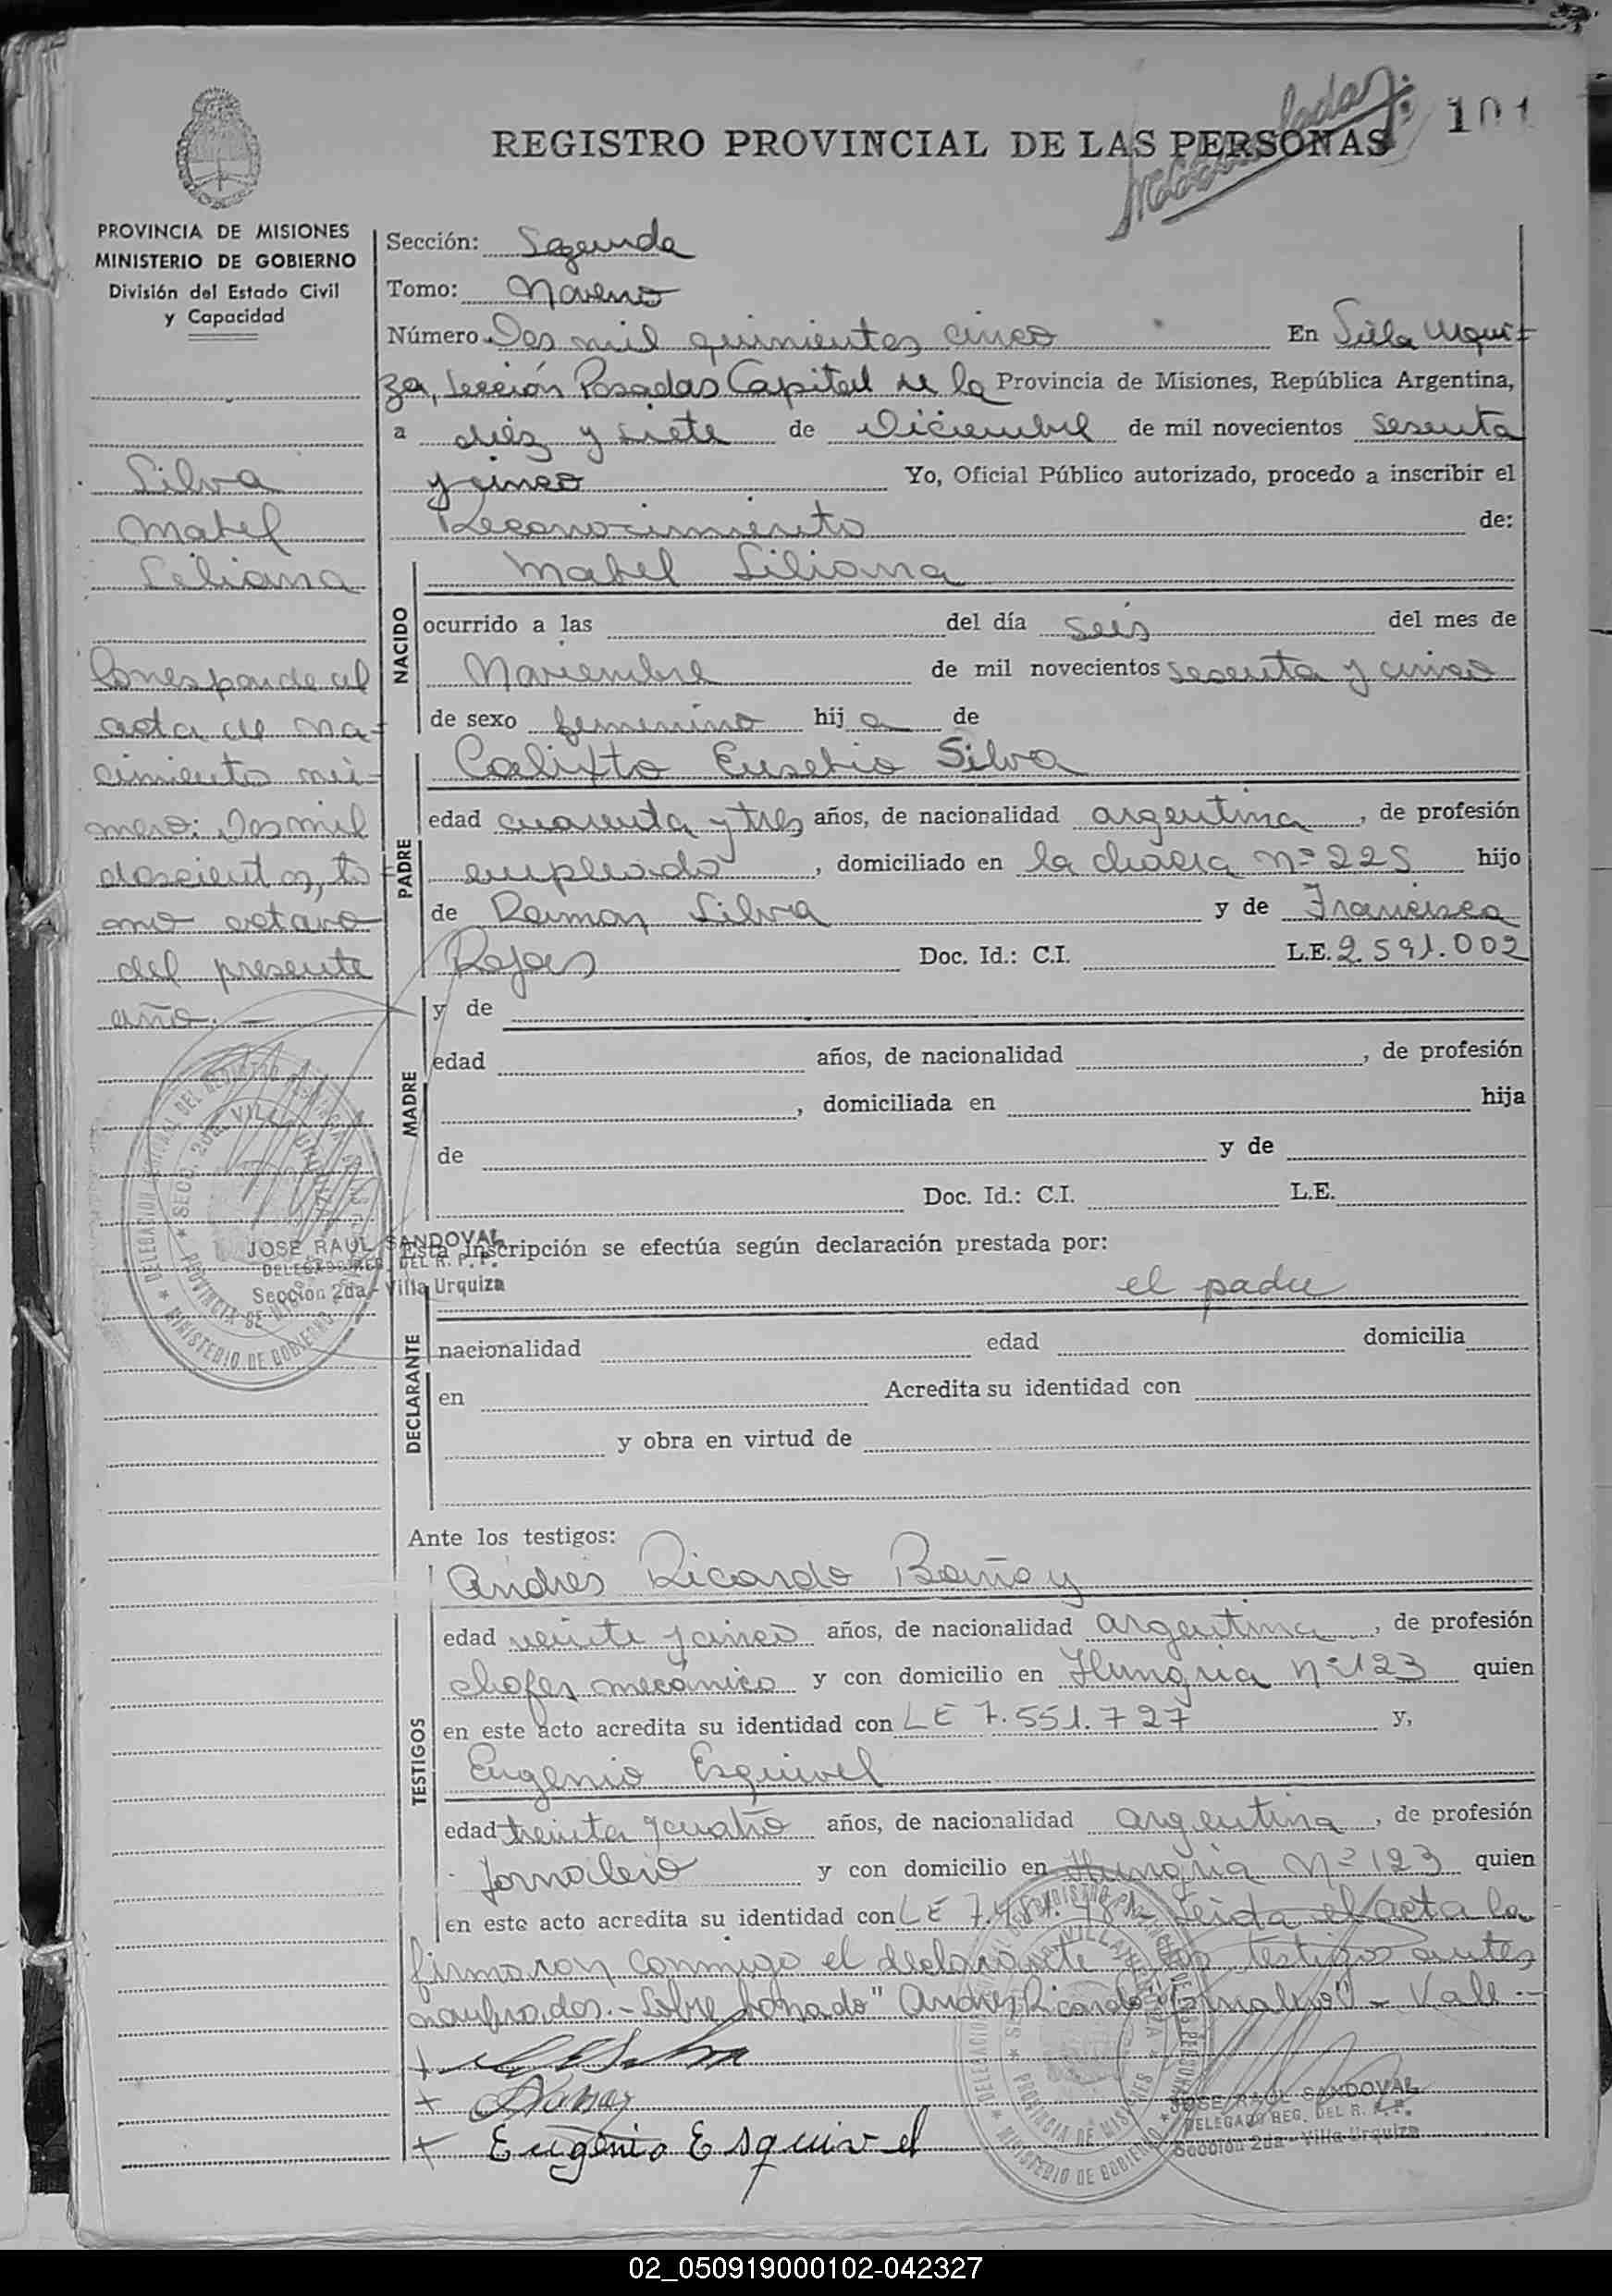 101
REGISTRO PROVINCIAL DE LAS PERSONAS
PROVINCIA DE MISIONES
MINISTERIO DE GOBIERNO
División del Estado Civil
y Capacidad
Silva
Mabel
Liliana
Corresponde al
acta de na-
cimiento nú-
mero: Dos mil
doscientos, to
mo octavo
del presente
año.-
JOSE RAUL SANDOVAL
DELEGADO REG. DEL R. P. P.
Sección 2da - Villa Urquiza
Sección: Segunda
Tomo: Noveno
Número Dos mil quinientos cinco En Villa Urqui-
za, Sección Posadas Capital de la Provincia de Misiones, República Argentina,
a diez y siete de Diciembre de mil novecientos sesenta
y cinco Yo, Oficial Público autorizado, procedo a inscribir el
Reconocimiento de:
NACIDO
Mabel Liliana
ocurrido a las del día seis del mes de
Noviembre de mil novecientos sesenta y cinco
de sexo femenino hij a de
PADRE
Calixto Eusebio Silva
edad cuarenta y tres años, de nacionalidad argentina, de profesión
empleado, domiciliado en la chacra Nº 225 hijo
de Ramon Silva y de Francisca
Rojas Doc. Id.: C.I. L.E. 2.591.002
MADRE
y de
edad años, de nacionalidad , de profesión
, domiciliada en hija
de y de
Doc. Id.: C.I. L.E.
Esta inscripción se efectúa según declaración prestada por:
el padre
DECLARANTE
nacionalidad edad domicilia
en Acredita su identidad con
y obra en virtud de
Ante los testigos:
TESTIGOS
Andres Ricardo
edad veinte y cinco años, de nacionalidad argentina, de profesión
chofer mecánico y con domicilio en Hungria Nº 123 quien
en este acto acredita su identidad con LE 7.551.727 y,
Eugenio Esquivel
edad treinta y cuatro años, de nacionalidad argentina, de profesión
Jornalero y con domicilio en Hungria Nº 123 quien
en este acto acredita su identidad con LE Leida el acta la
firmaron conmigo el declarante y los testigos antes
nombrados.- Sobre borrado "Andres Ricardo" - Vale.-
Eugenio Esquivel
JOSE RAUL SANDOVAL
DELEGADO REG. DEL R. P. P.
Sección 2da - Villa Urquiza
02_050919000102-042327